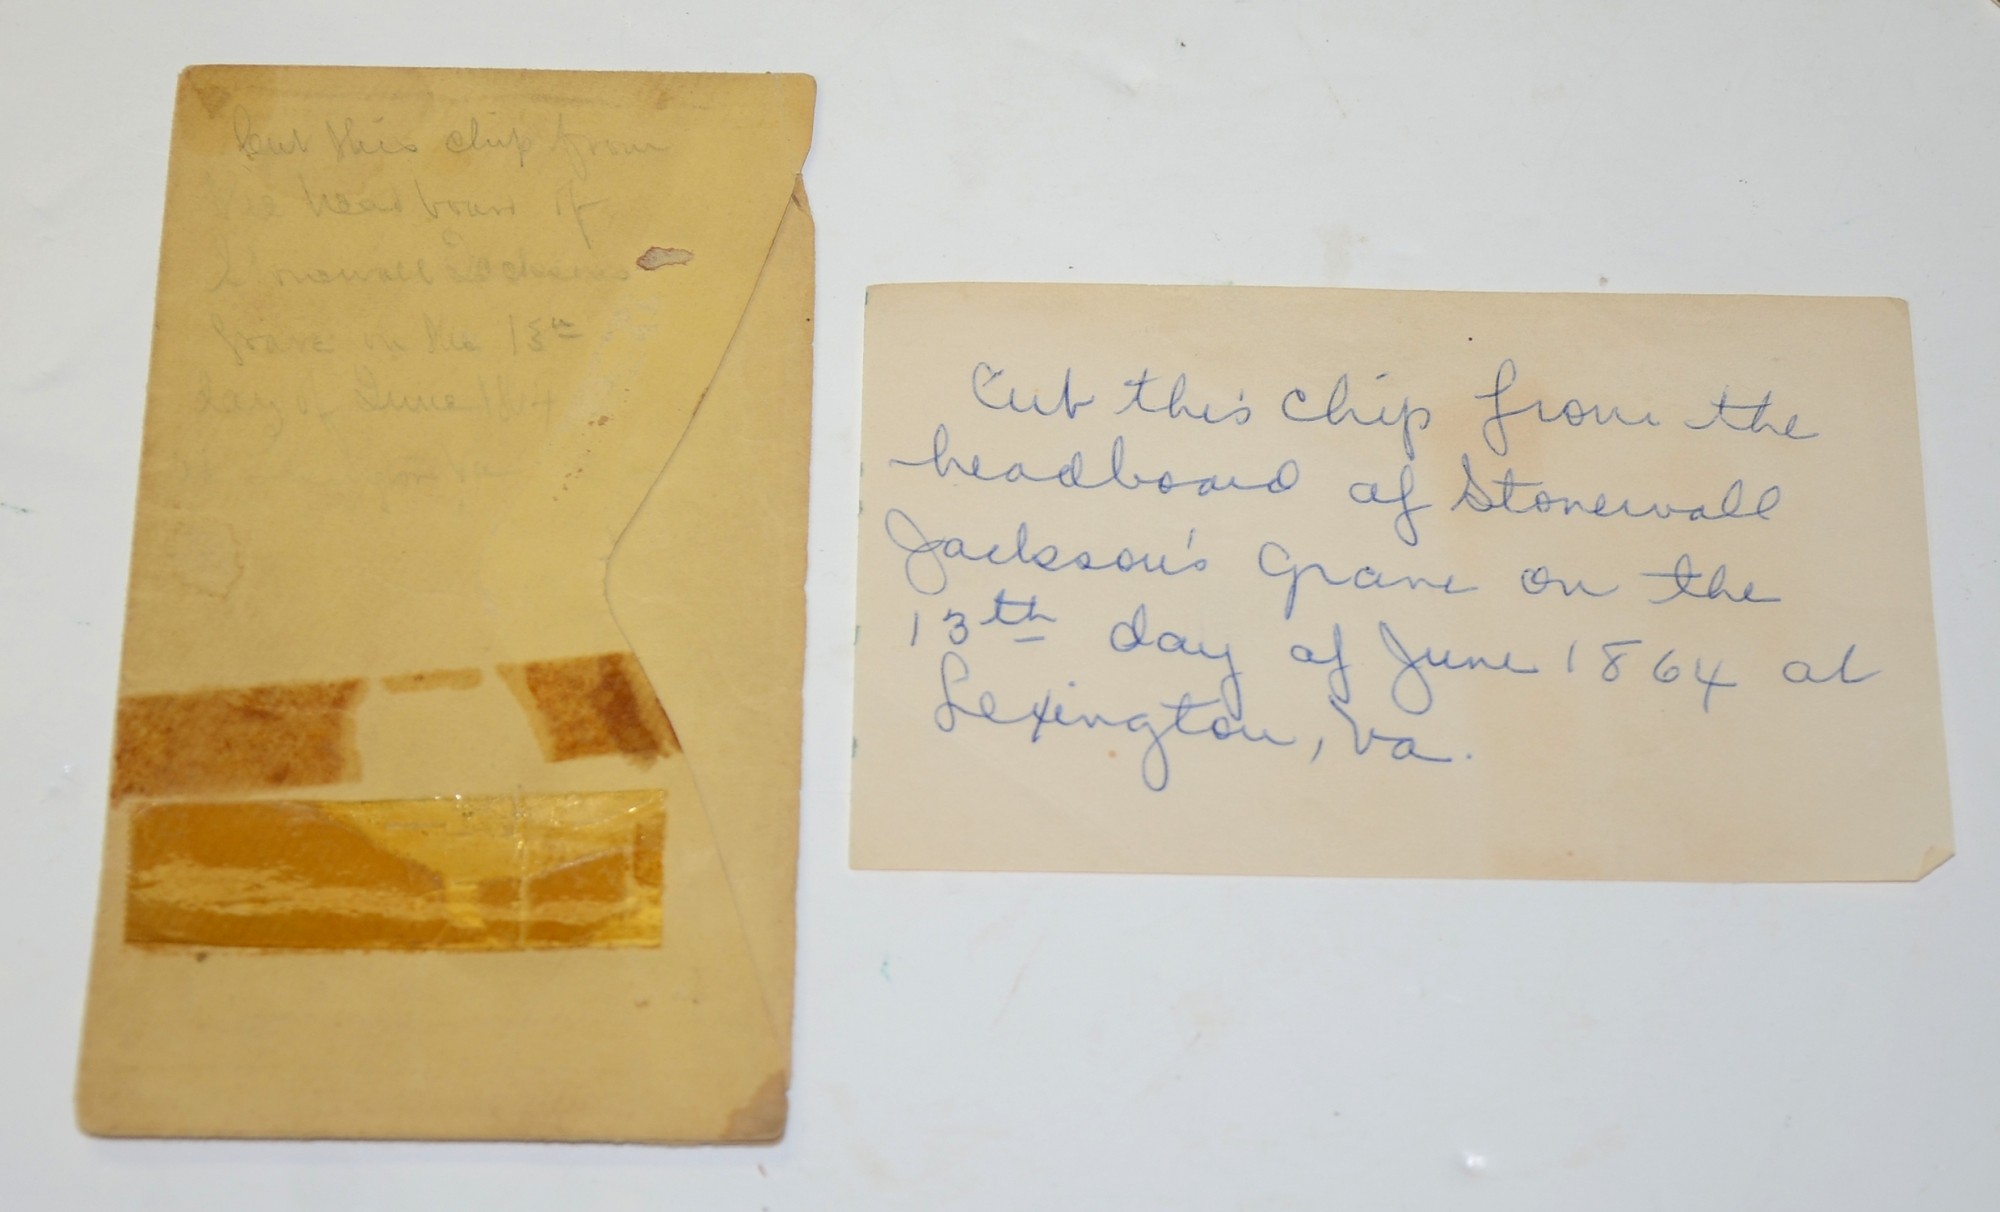 Cut this chip from
the headboard of
Stonewall Jacksons
grave on the 13th
day of June 1864
Cut this chip from the
headboard of Stonewall
Jackson's grave on the
13th day of June 1864 at
Lexington, Va.